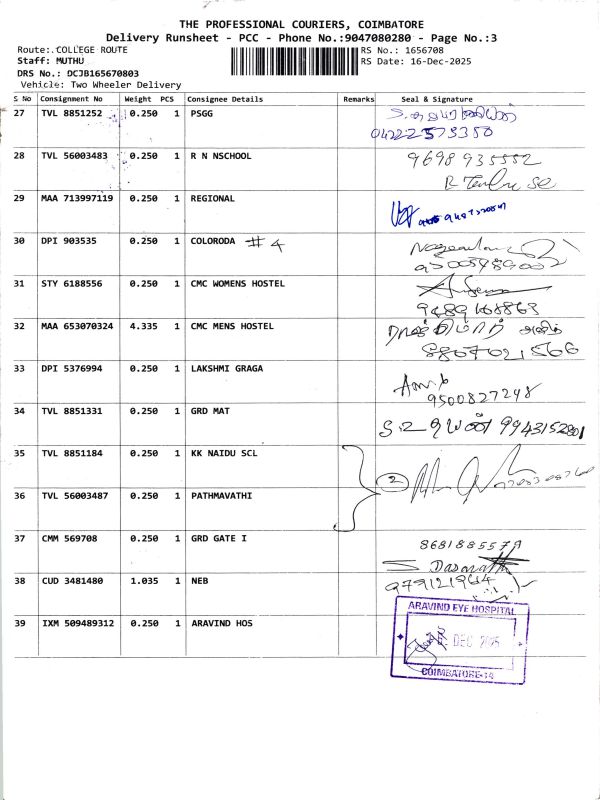 THE PROFESSIONAL COURIERS, COIMBATORE
Delivery Runsheet - PCC - Phone No.:9047080280 - Page No.:3
Route: COLLEGE ROUTE RS No.: 1656708
Staff: MUTHU RS Date: 16-Dec-2025
DRS No.: DCJB165670803
Vehicle: Two Wheeler Delivery
S No Consignment No Weight PCS Consignee Details Remarks Seal & Signature
27 TVL 8851252 0.250 1 PSGG
04222573350
28 TVL 56003483 0.250 1 R N NSCHOOL 9698935552
29 MAA 713997119 0.250 1 REGIONAL
30 DPI 903535 0.250 1 COLORODA #4
31 STY 6188556 0.250 1 CMC WOMENS HOSTEL
9489168863
32 MAA 653070324 4.335 1 CMC MENS HOSTEL
8807021566
33 DPI 5376994 0.250 1 LAKSHMI GRAGA
9500827248
34 TVL 8851331 0.250 1 GRD MAT 9943152801
35 TVL 8851184 0.250 1 KK NAIDU SCL
2
36 TVL 56003487 0.250 1 PATHMAVATHI
37 CMM 569708 0.250 1 GRD GATE I
Dasarath
38 CUD 3481480 1.035 1 NEB 979121964
39 IXM 509489312 0.250 1 ARAVIND HOS
ARAVIND EYE HOSPITAL
DEC 2025
COIMBATORE-14